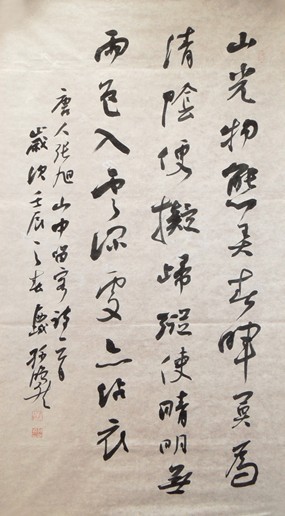 山光物態弄春暉莫為
清陰便擬歸縱使晴明無
雨色入雲深處亦沾衣
唐人張旭山中留客詩一首
歲次壬辰之春